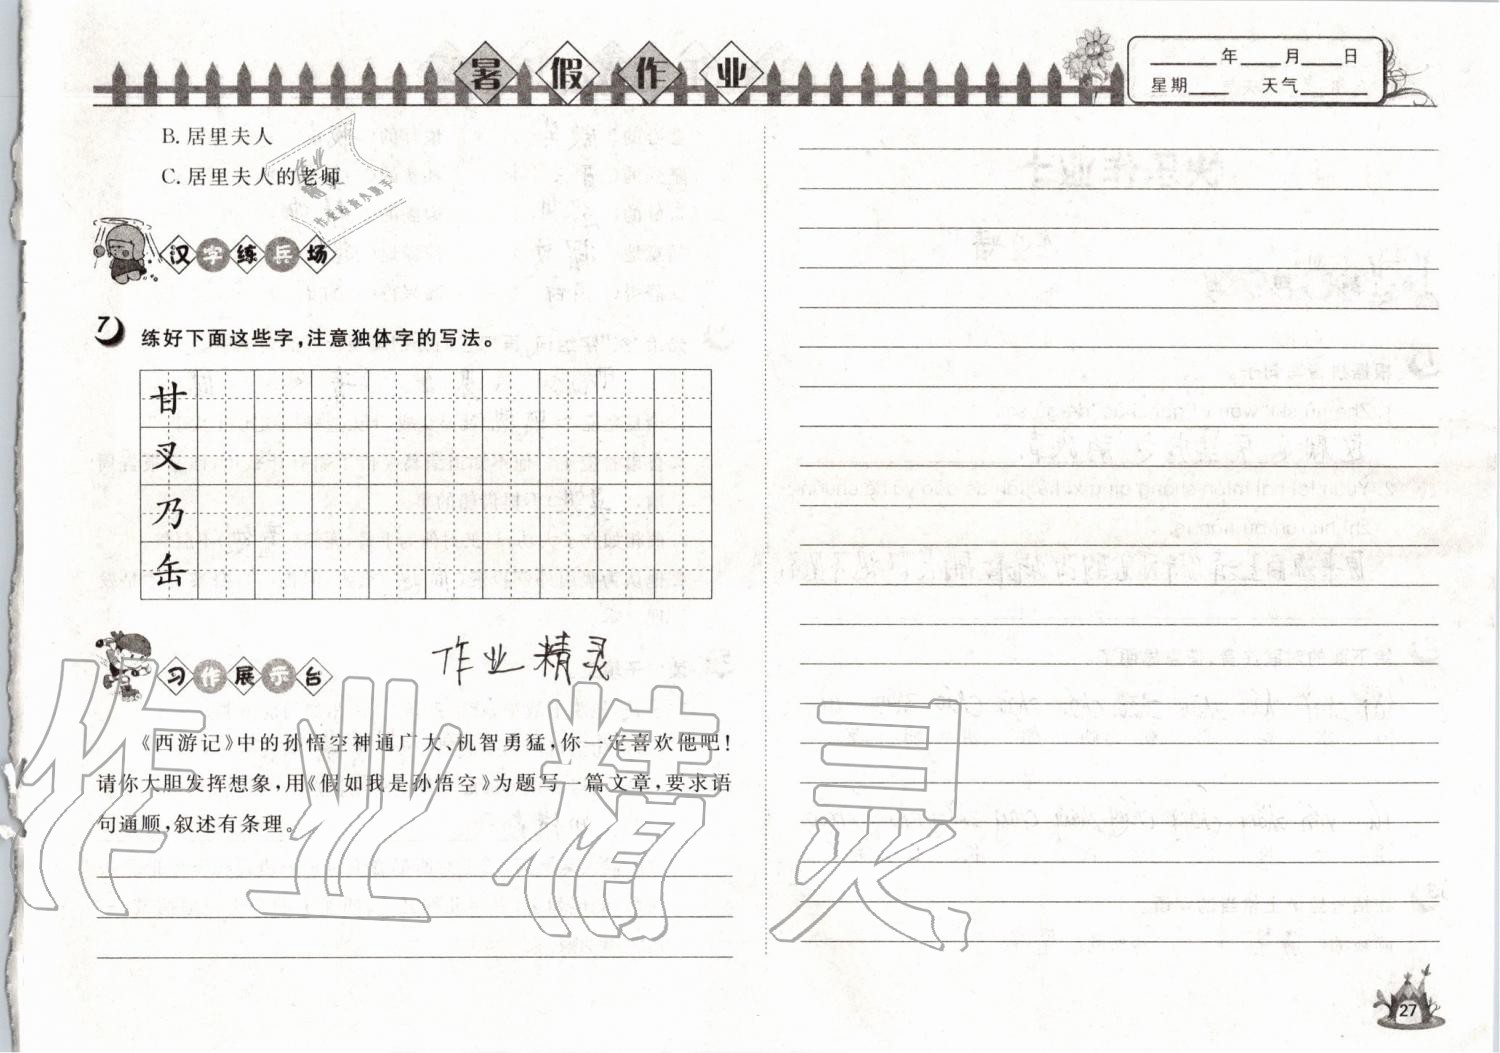 暑假作业
____年____月____日
星期____ 天气____
B. 居里夫人
C. 居里夫人的老师
汉字练兵场
7 练好下面这些字，注意独体字的写法。
甘
叉
乃
缶
作业精灵
习作展示台
《西游记》中的孙悟空神通广大、机智勇猛，你一定喜欢他吧！
请你大胆发挥想象，用《假如我是孙悟空》为题写一篇文章，要求语
句通顺，叙述有条理。
作业精灵
27